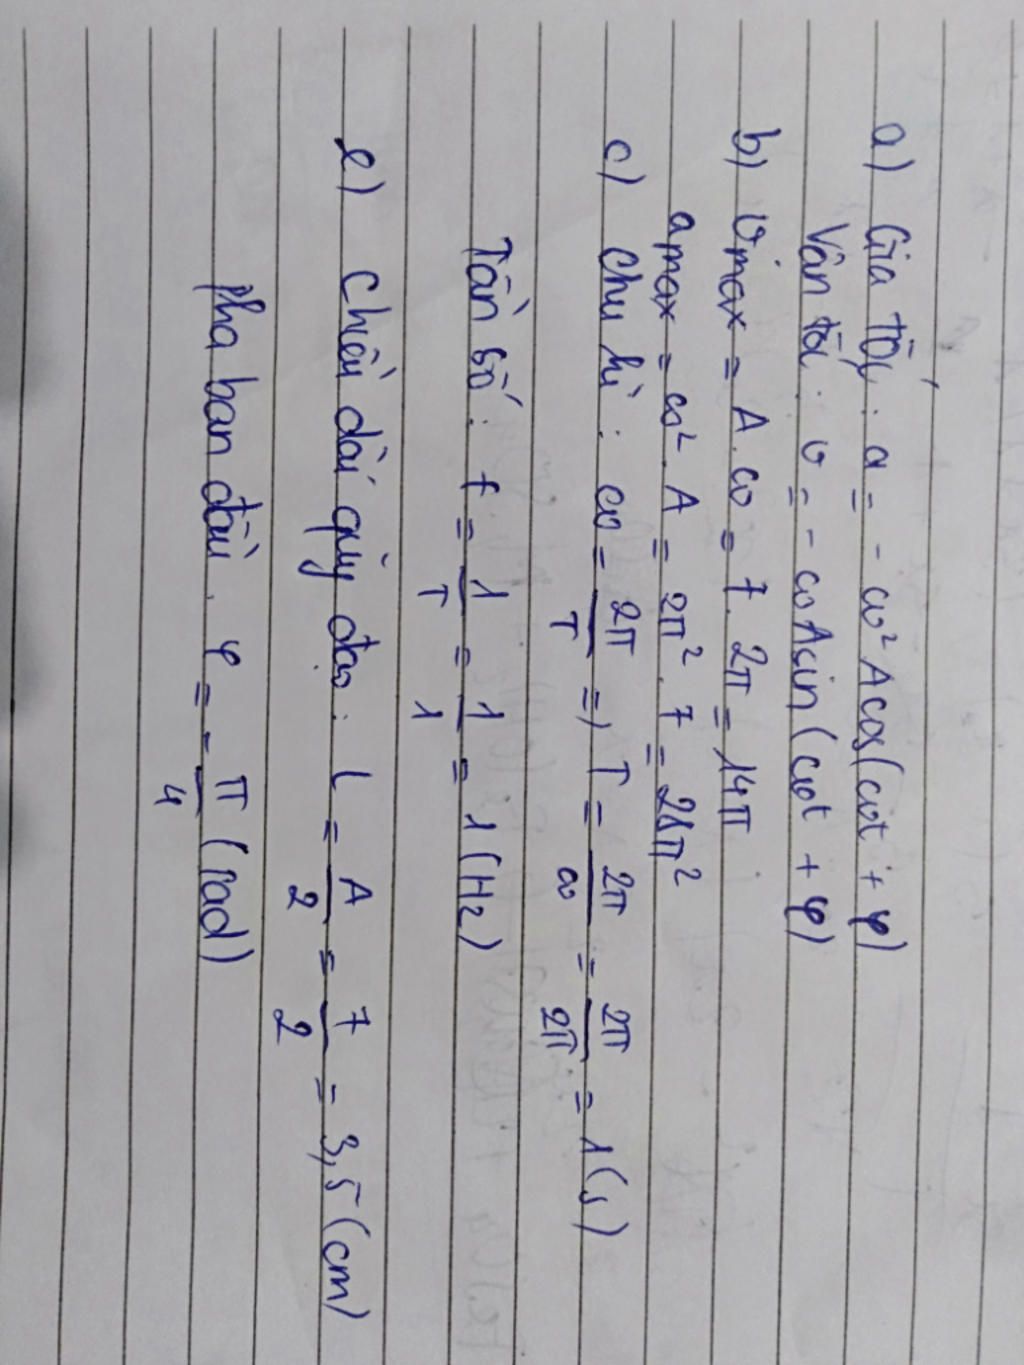 a) Gia tốc : a = - ω² A cos(ωt + φ)
Vân tốc : v = - ωA sin(ωt + φ)
b) vmax = A.ω = 7.2π = 14π
amax = ω².A = 2π².7 = 28π²
c) Chu kì : ω = 2π/T => T = 2π/ω = 2π/2π = 1(s)
Tần số : f = 1/T = 1/1 = 1(Hz)
e) Chiều dài quỹ đạo : L = A/2 = 7/2 = 3,5(cm)
pha ban đầu . φ = - π/4 (rad)